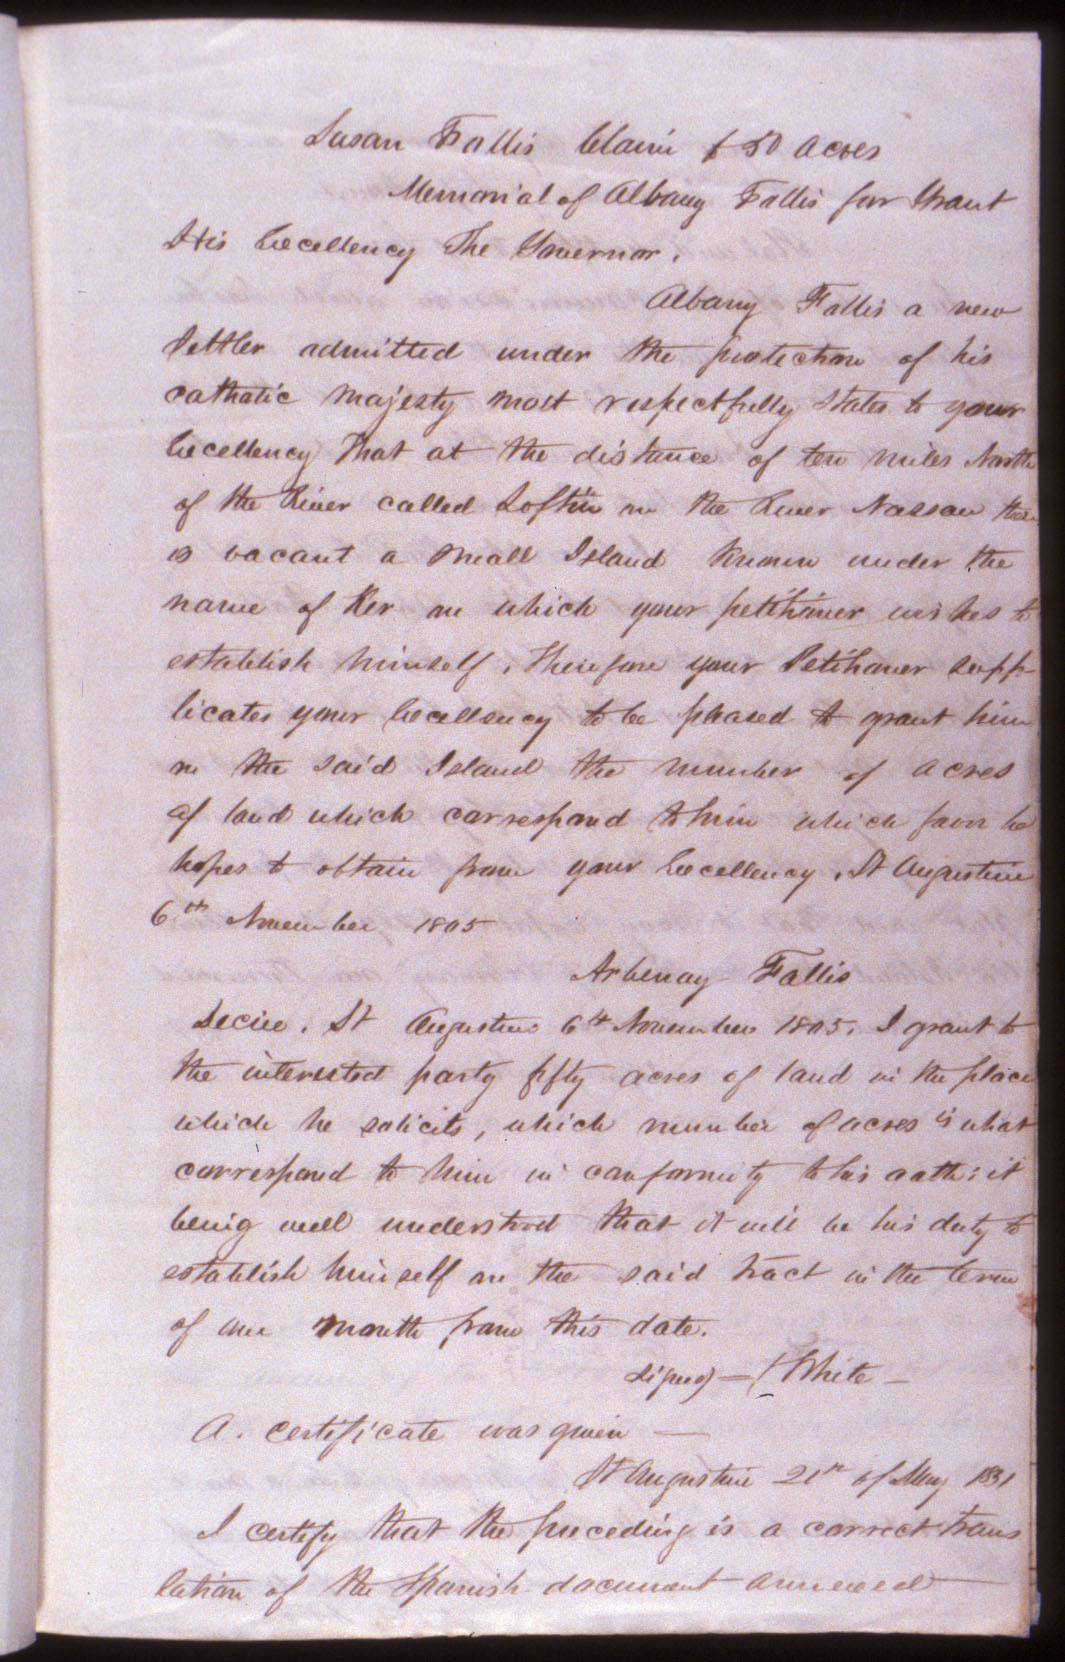 Susan Fallis Claim f 50 acres
Memorial of Albany Fallis for Grant
His Excellency The Governor.
Albany Fallis a new
Settler admitted under the protection of his
catholic majesty most respectfully states to your
Excellency that at the distance of ten miles North
of the River called Loftin on the River Nassau there
is vacant a small Island known under the
name of Ker on which your petitioner wishes to
establish himself. Therefore your Petitioner supp-
licates your Excellency to be pleased to grant him
in the said Island the number of acres
of land which correspond to him which favor he
hopes to obtain from your Excellency. St Augustine
6th November 1805
Arbenay Fallis
Decree. St Augustine 6th November 1805. I grant to
the interested party fifty acres of land in the place
which he solicits, which number of acres is what
correspond to him in conformity to his oath: it
being well understood that it will be his duty to
establish himself on the said tract in the term
of one month from this date.
Signed) — (White —
A. certificate was given —
St Augustine 21st of May 1831
I certify that the preceding is a correct trans
lation of the Spanish document annexed —